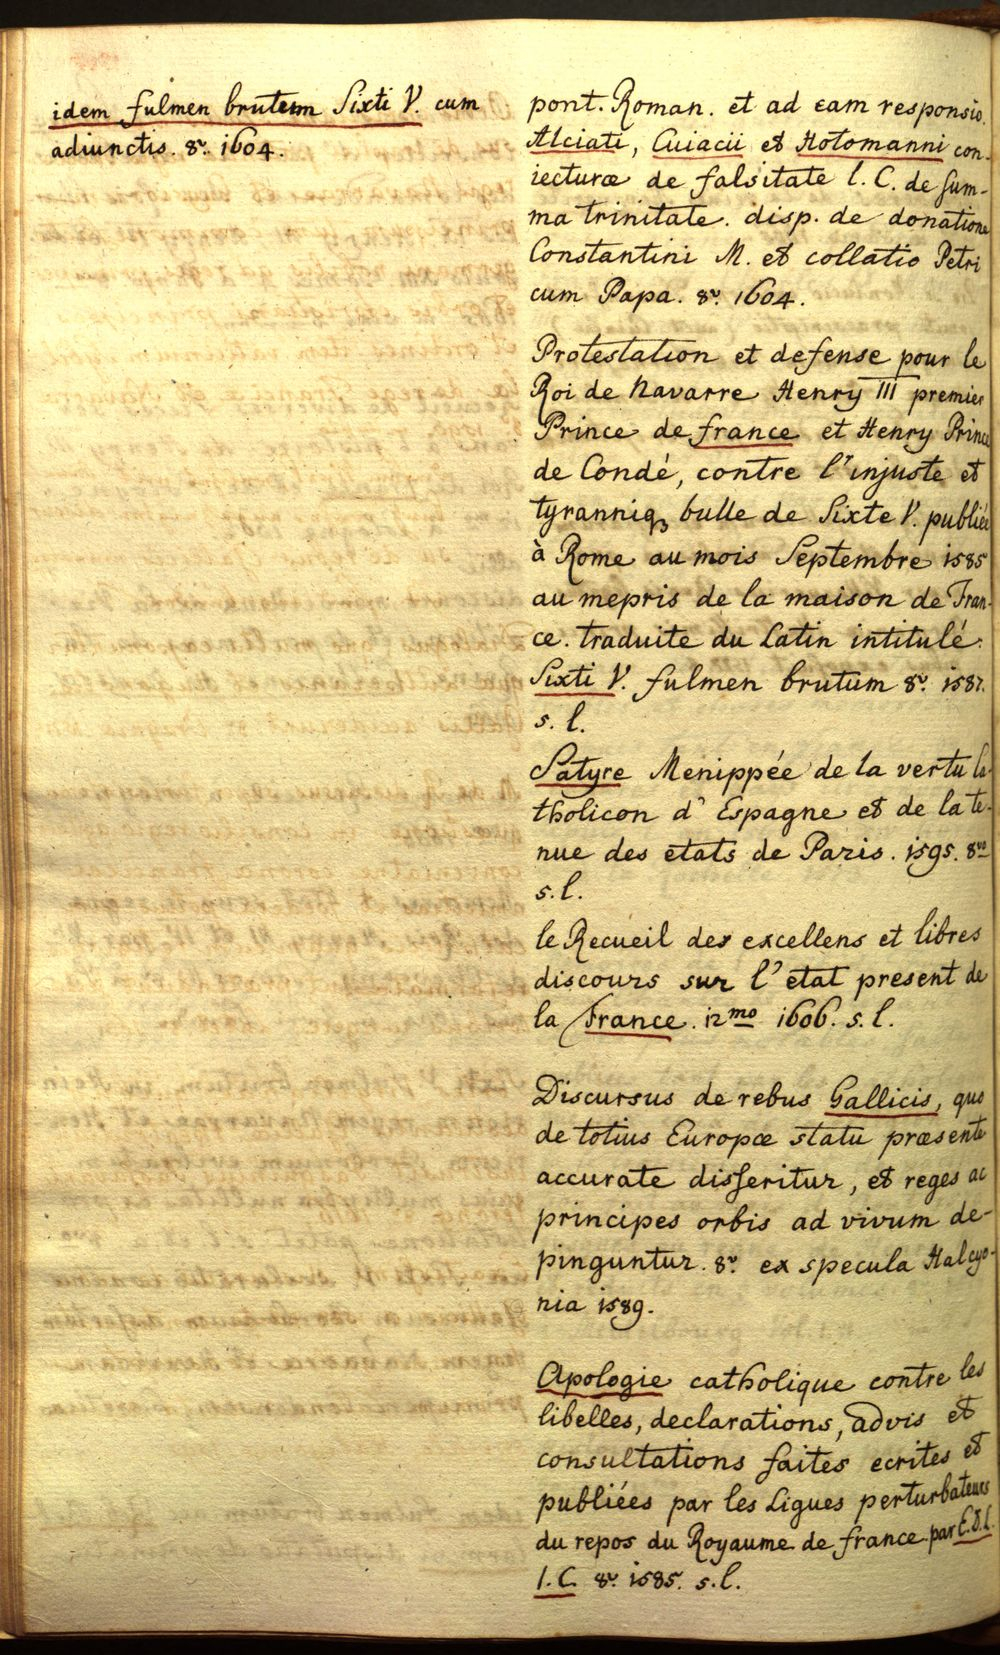 idem fulmen brutum Sixti V. cum
adiunctis. 8º. 1604.
pont. Roman. et ad eam responsio.
Alciati, Cuiacii et Hotomanni con-
iecturæ de falsitate l. C. de sum-
ma trinitate. disp. de donatione
Constantini M. et collatio Petri
cum Papa. 8º. 1604.
Protestation et defense pour le
Roi de Navarre Henry III premier
Prince de france et Henry Prince
de Condé, contre l'injuste et
tyranniq3 bulle de Sixte V. publiée
à Rome au mois Septembre 1585
au mepris de la maison de Fran-
ce. traduite du Latin intitulé:
Sixti V. fulmen brutum 8º. 1587.
s. l.
Satyre Menippée de la vertu Ca-
tholicon d'Espagne et de la te-
nue des etats de Paris. 1595. 8vo
s. l.
le Recueil des excellens et libres
discours sur l'etat present de
la France. 12mo 1606. s. l.
Discursus de rebus Gallicis, quo
de totius Europæ statu præsente
accurate disseritur, et reges ac
principes orbis ad vivum de-
pinguntur. 8º. ex specula Halcyo-
nia 1589.
Apologie catholique contre les
libelles, declarations, advis et
consultations faites ecrites et
publiées par les Ligues perturbateurs
du repos du Royaume de france par E.D.L.
I.C. 8º. 1585. s. l.